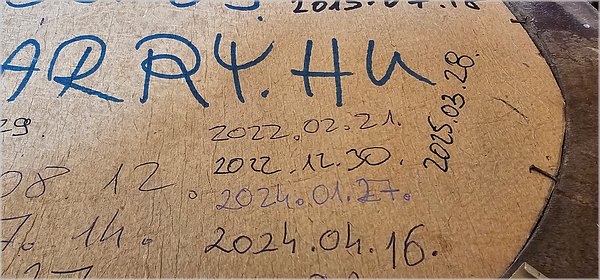 2015.07.18
ARRY.HU
29.
2022.02.21.
2025.03.28.
2022.12.30.
08 12.
2024.01.27.
7. 14.
2024.04.16.
27